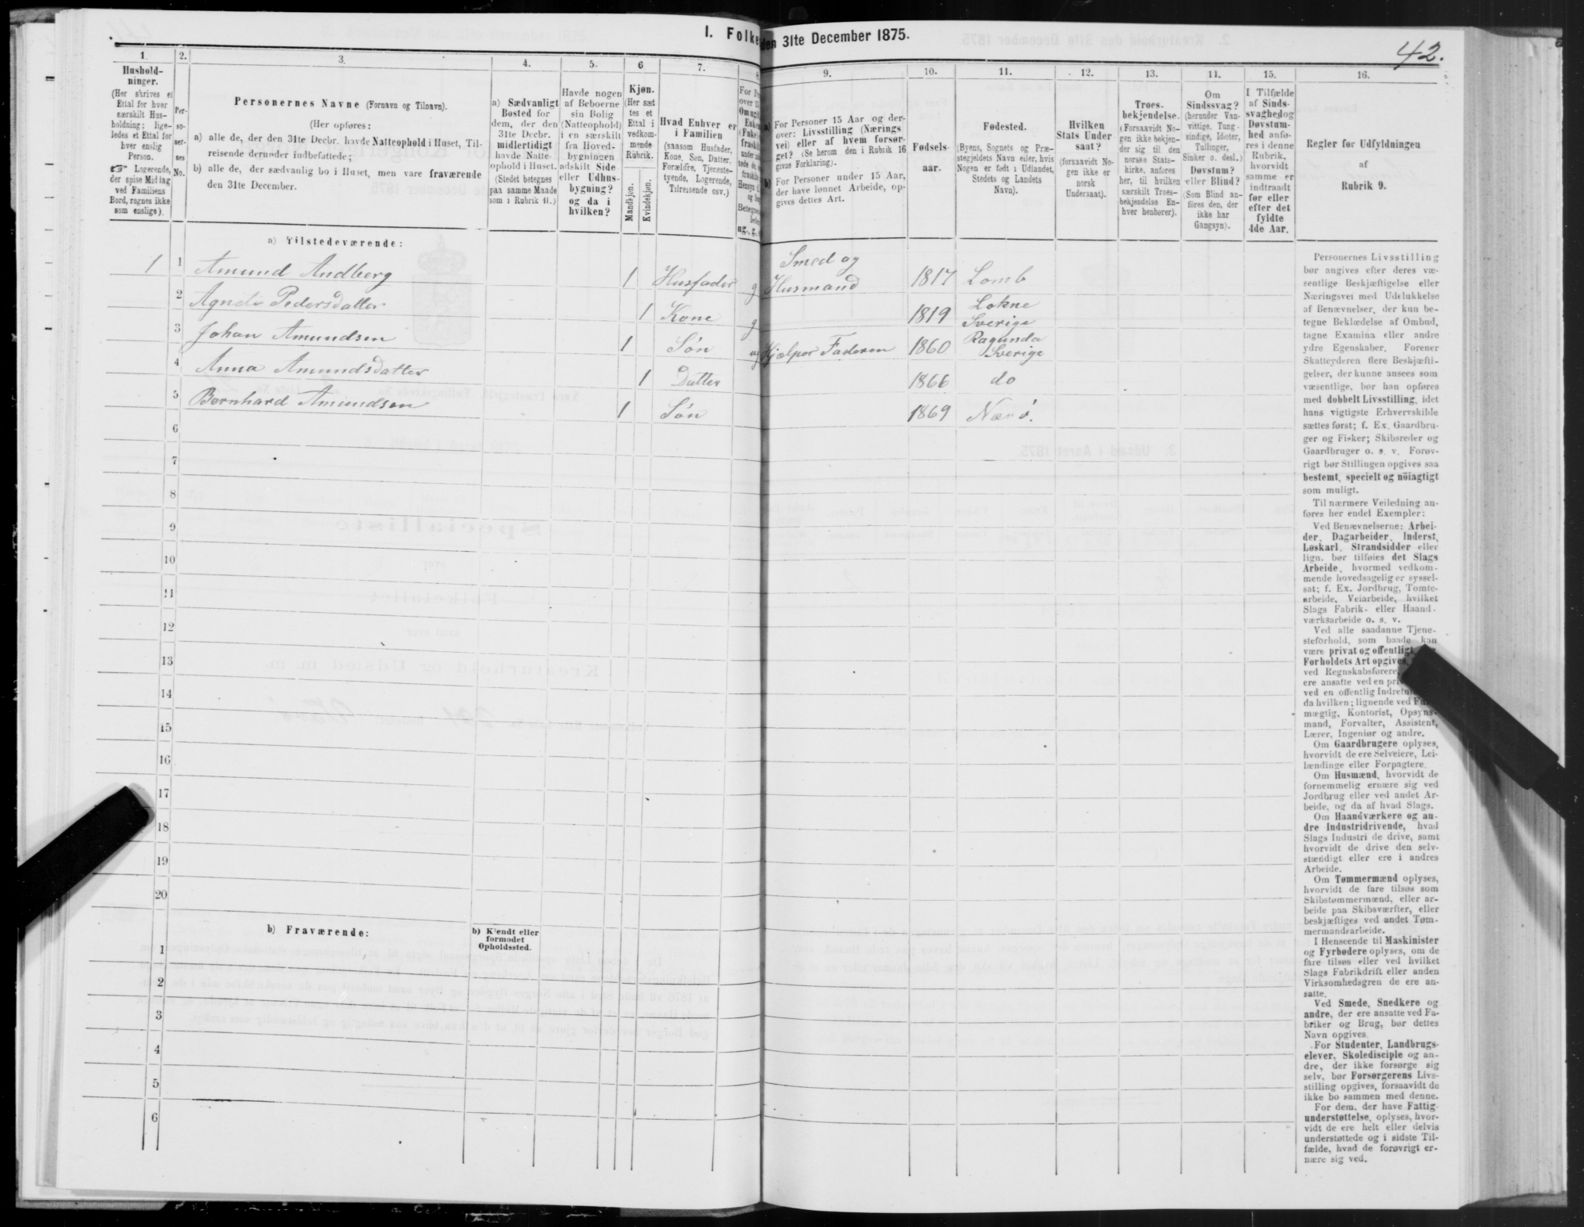 I. Folke
den 31te December 1875.
42.
1.
Hushold-
ninger.
(Her skrives et
Ettal for hver
særskilt Hus-
holdning; lige-
ledes et Ettal for
hver enslig
Person.
☞ Logerende,
der spise Middag
ved Familiens
Bord, regnes ikke
som enslige).
2.
Per-
so-
ner-
nes
No.
3.
Personernes Navne (Fornavn og Tilnavn).
(Her opføres:
a) alle de, der den 31te Decbr. havde Natteophold i Huset, Til-
reisende derunder indbefattede;
b) alle de, der sædvanlig bo i Huset, men vare fraværende
den 31te December.
4.
a) Sædvanligt
Bosted for
dem, der den
31te Decbr.
midlertidigt
havde Natte-
ophold i Huset.
(Stedet betegnes
paa samme Maade
som i Rubrik 11.)
5.
Havde nogen
af Beboerne
sin Bolig
(Natteophold)
i en særskilt
fra Hoved-
bygningen
adskilt Side-
eller Udhus-
bygning?
og da i
hvilken?
6
Kjøn.
(Her sæt-
tes et
Ettal i
vedkom-
mende
Rubrik.
Mandkjøn.
Kvindekjøn.
7.
Hvad Enhver er
i Familien
(saasom Husfader,
Kone, Søn, Datter,
Forældre, Tjeneste-
tyende, Logerende,
Tilreisende osv.)
9.
a) For Personer 15 Aar og der-
over: Livsstilling (Nærings-
vei) eller af hvem forsør-
get? (Se herom den i Rubrik 16
givne Forklaring).
b) For Personer under 15 Aar,
der have lønnet Arbeide, op-
gives dettes Art.
10.
Fødsels-
aar.
11.
Fødested.
(Byens, Sognets og Præ-
stegjeldets Navn eller, hvis
Nogen er født i Udlandet,
Stedets og Landets
Navn).
12.
Hvilken
Stats Under-
saat?
(forsaavidt No-
gen ikke er
norsk
Undersaat).
13.
Troes-
bekjendelse.
(Forsaavidt No-
gen ikke bekjen-
der sig til den
norske Stats-
kirke, anføres
her, til hvilken
særskilt Troes-
bekjendelse En-
hver henhører).
11.
Om
Sindssvag?
(herunder Van-
vittige, Tung-
sindige, Idioter,
Tullinger,
Sinker o. desl.)
Døvstum?
eller Blind?
(Som Blind an-
føres den, der
ikke har
Gangsyn).
15.
I Tilfælde
af Sinds-
svaghed og
Døvstum-
hed anfø-
res i denne
Rubrik,
hvorvidt
samme er
indtraadt
før eller
efter det
fyldte
4de Aar.
16.
Regler før Udfyldningen
af
Rubrik 9.
a) Tilstedeværende:
1 1 Amund Andberg 1 Husfader g Smed og
Husmand 1817 Lomb
2 Agnete Pedersdatter 1 Kone g 1819 Lokne
Sverige
3 Johan Amundsen 1 Søn ug Hjælper Faderen 1860 Ragunda
Sverige
4 Anna Amundsdatter 1 Datter 1866 do
5 Bernhard Amundsen 1 Søn 1869 Nærø.
6
7
8
9
10
11
12
13
14
15
16
17
18
19
20
b) Fraværende:
b) Kjendt eller
formodet
Opholdssted.
1
2
3
4
5
6
Personernes Livsstilling
bør angives efter deres væ-
sentlige Beskjæftigelse eller
Næringsvei med Udelukkelse
af Benævnelser, der kun be-
tegne Beklædelse af Ombud,
tagne Examina eller andre
ydre Egenskaber. Forener
Skatteyderen flere Beskjæfti-
gelser, der kunne ansees som
væsentlige, bør han opføres
med dobbelt Livsstilling, idet
hans vigtigste Erhvervskilde
sættes først; f. Ex. Gaardbru-
ger og Fisker; Skibsreder og
Gaardbruger o. s. v. Forøv-
rigt bør Stillingen opgives saa
bestemt, specielt og nöiagtigt
som muligt.
Til nærmere Veiledning an-
føres her endel Exempler:
Ved Benævnelserne: Arbei-
der, Dagarbeider, Inderst,
Løskarl, Strandsidder eller
lign. bør tilføies det Slags
Arbeide, hvormed vedkom-
mende hovedsagelig er syssel-
sat; f. Ex. Jordbrug, Tomte-
arbeide, Veiarbeide, hvilket
Slags Fabrik- eller Haand-
værksarbeide o. s. v.
Ved alle saadanne Tjene-
steforhold, som baade kan
være privat og offentligt,
Forholdets Art opgives,
ved Regnskabsførere,
ere ansatte ved en
ved en offentlig
da hvilken; lignende ved
mægtig, Kontorist, Opsyns-
mand, Forvalter, Assistent,
Lærer, Ingeniør og andre.
Om Gaardbrugere oplyses,
hvorvidt de ere Selveiere, Lei-
lændinge eller Forpagtere.
Om Husmænd, hvorvidt de
fornemmelig ernære sig ved
Jordbrug eller ved andet Ar-
beide, og da af hvad Slags.
Om Haandværkere og an-
dre Industridrivende, hvad
Slags Industri de drive, samt
hvorvidt de drive den selv-
stændigt eller ere i andres
Arbeide.
Om Tømmermænd oplyses,
hvorvidt de fare tilsøs som
Skibstømmermænd, eller ar-
beide paa Skibsværfter, eller
beskjæftiges ved andet Tøm-
mermandsarbeide.
I Henseende til Maskinister
og Fyrbødere oplyses, om de
fare tilsøs eller ved hvilket
Slags Fabrikdrift eller anden
Virksomhedsgren de ere an-
satte.
Ved Smede, Snedkere og
andre, der ere ansatte ved Fa-
briker og Brug, bør dettes
Navn opgives.
For Studenter, Landbrugs-
elever, Skoledisciple og an-
dre, der ikke forsørge sig
selv, bør Forsørgerens Livs-
stilling opgives, forsaavidt de
ikke bo sammen med denne.
For dem, der have Fattig-
understøttelse, oplyses, hvor-
vidt de ere helt eller delvis
understøttede og i sidste Til-
fælde, hvad de forøvrigt er-
nære sig ved.